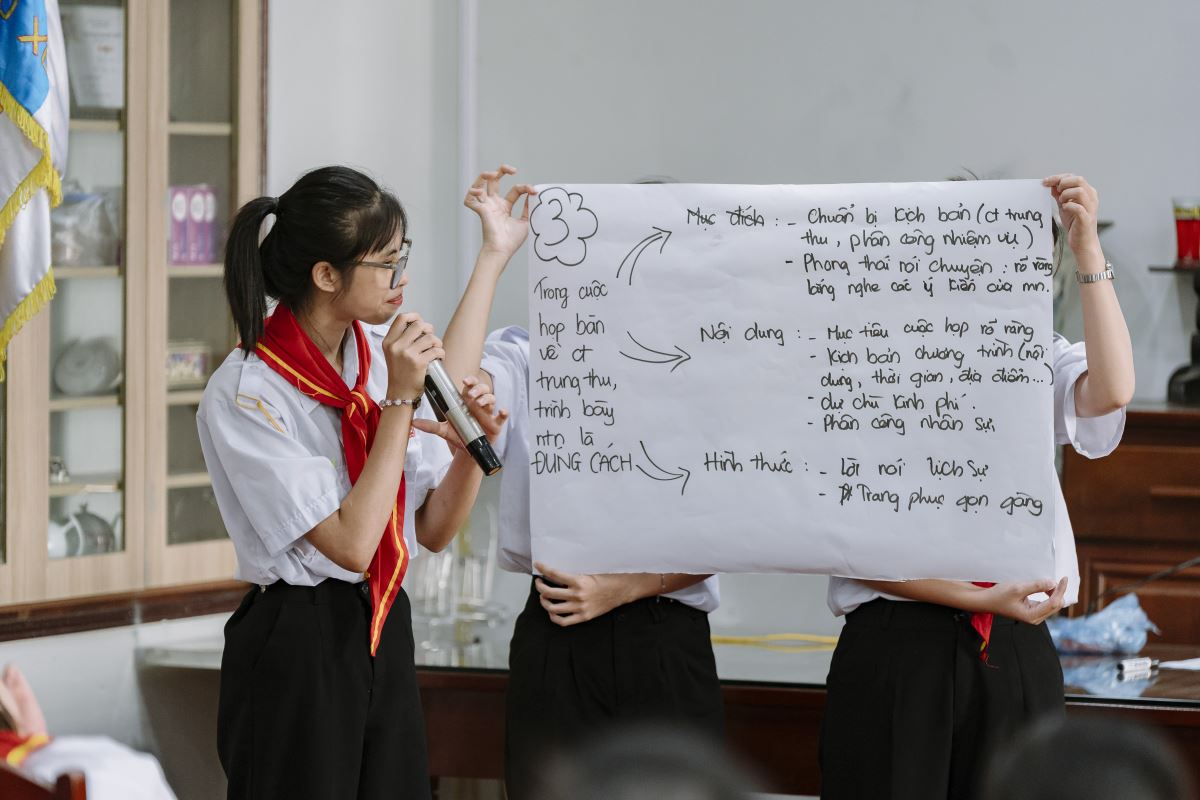 3
Trong cuộc
họp bàn
về ct
trung thu,
trình bày
ntn là
ĐÚNG CÁCH
Mục đích : - Chuẩn bị kịch bản (ct trung
thu, phân công nhiệm vụ)
- Phong thái nói chuyện : rõ ràng
lắng nghe các ý kiến của mn.
Nội dung : - Mục tiêu cuộc họp rõ ràng
- Kịch bản chương trình (nội
dung, thời gian, địa điểm...)
- dự chù kinh phí.
- Phân công nhân sự.
Hình thức : - Lời nói lịch sự
- Trang phục gọn gàng